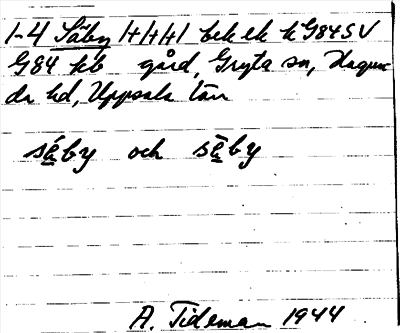 1-4 Säby 1+1+1+1 bek ek k G84SV
G84 kb gård, Gryta sn, Hagun
da hd, Uppsala län
sé̱by och sē̱by
A. Tideman 1944